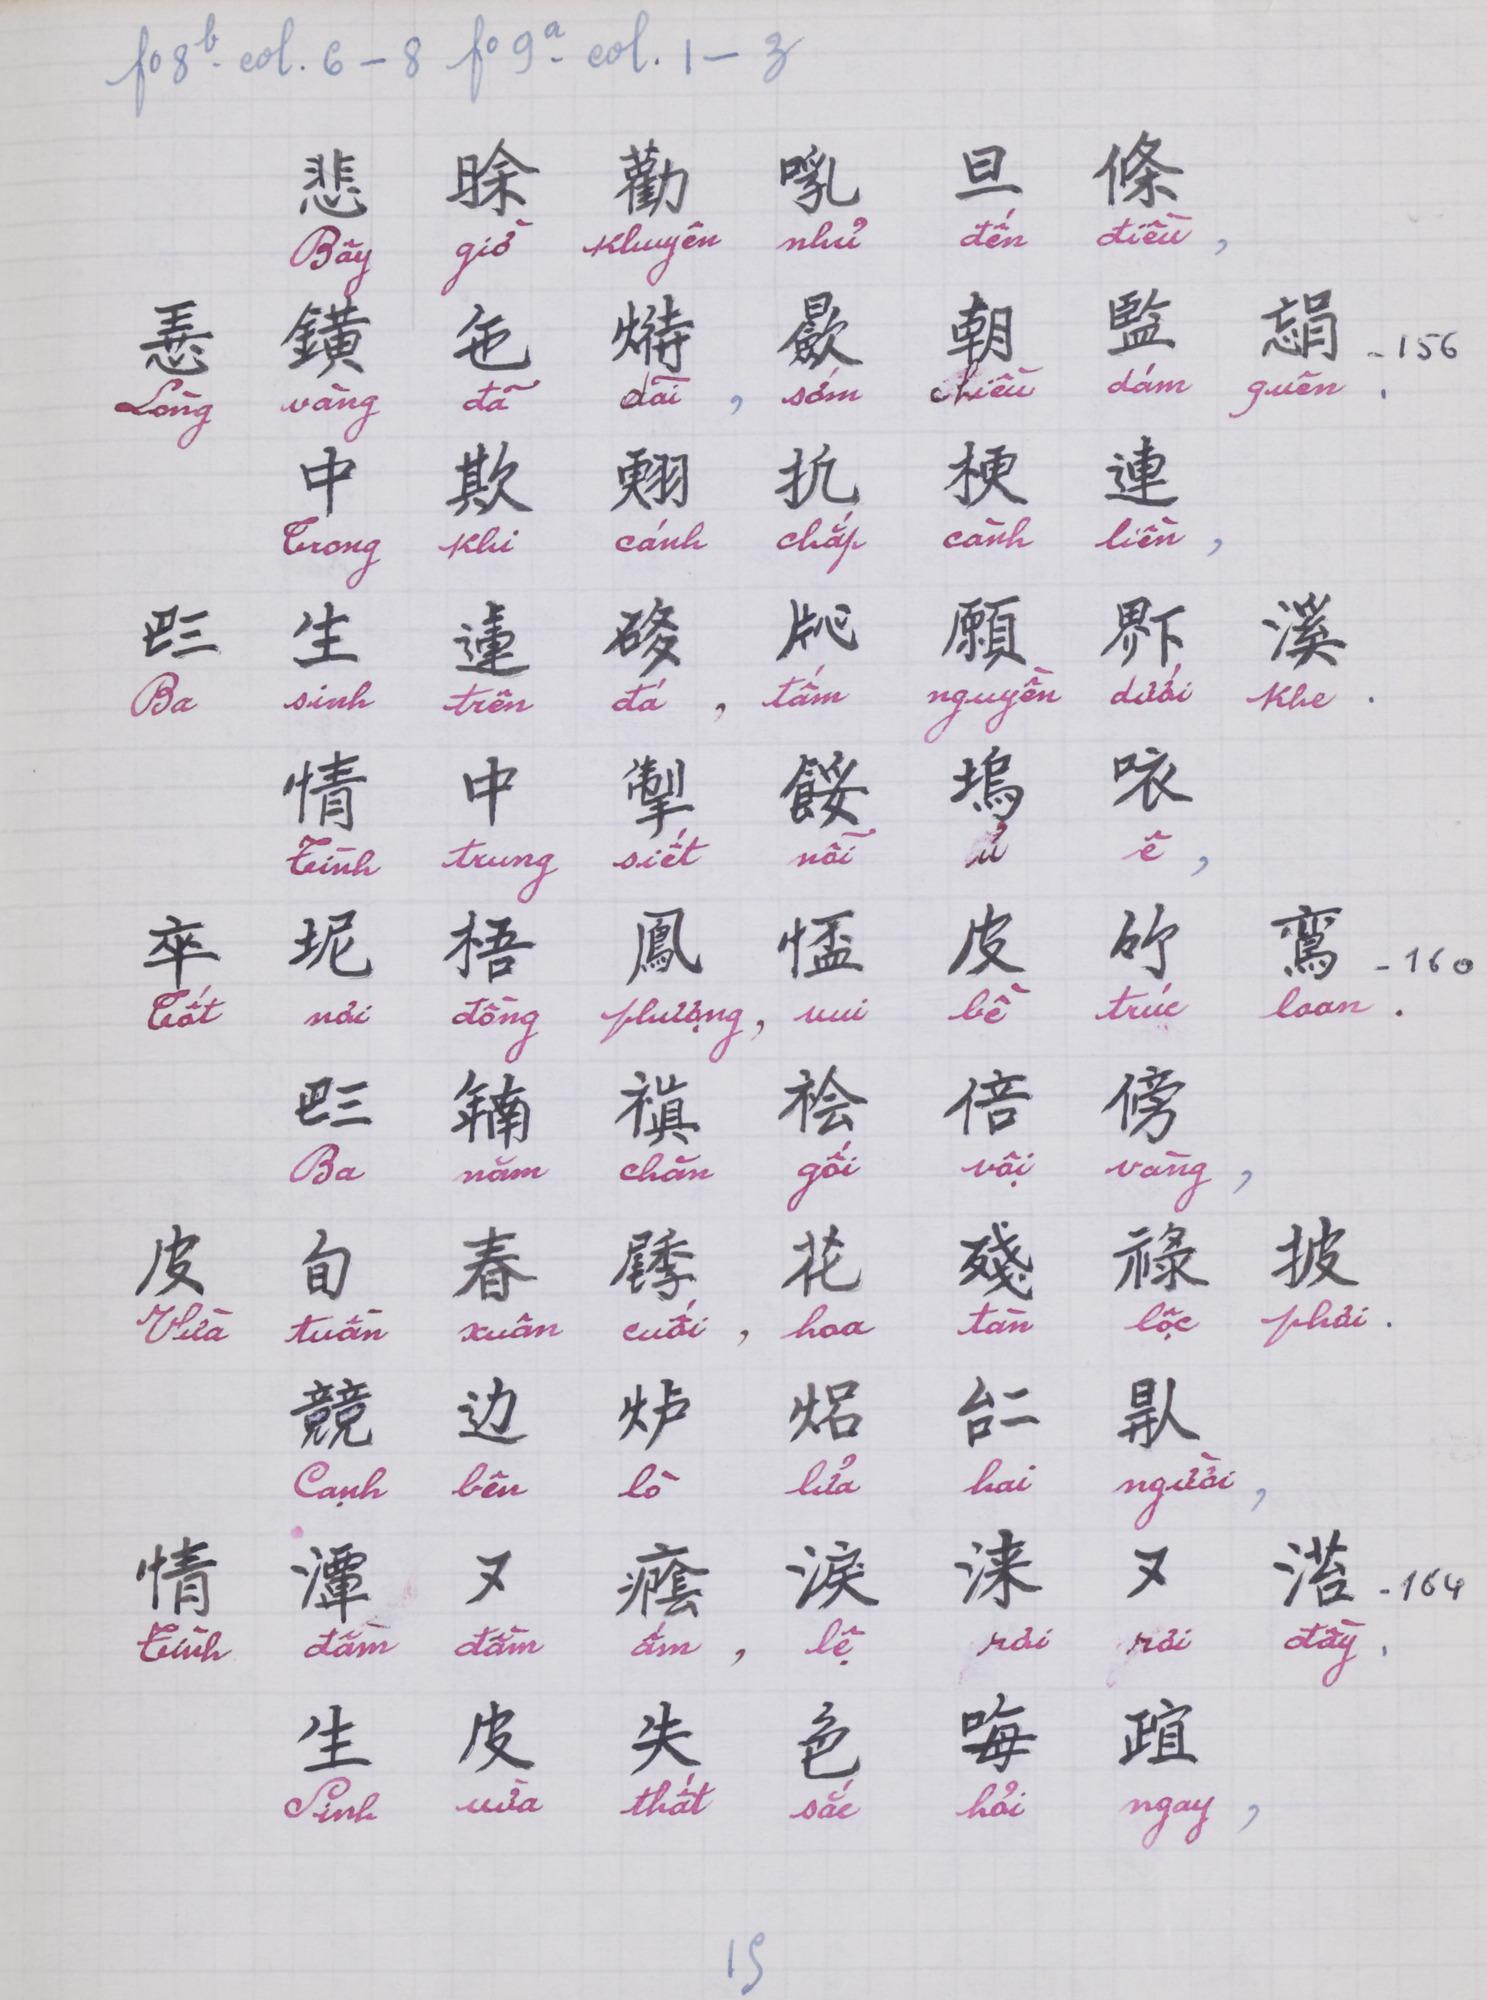 fo 8b. col. 6 – 8 fo 9a. col. 1 – 3
悲 㖡 勸 嘓 旦 條
Bãy giờ khuyên nhủ đến điều,
鐄 㐌 朝 監 - 156
Lòng vàng đã dãi, sớm chiều dám quên.
中 欺 梗 連
Trong khi cánh chắp cành liền,
𠀧 生 願 溪
Ba sinh trên đá, tấm nguyền dưới khe.
情 中 掣 餒 塢 㕈
Tình trung siết nỗi ủ ê,
卒 坭 梧 鳳 皮 竹 鸞 - 160
Tốt nơi đồng phượng, vui bề trúc loan.
𠀧 襘 倍 傍
Ba năm chăn gối vội vàng,
皮 旬 春 花 殘 祿 披
Vừa tuần xuân cưới, hoa tàn lộc phải.
競 边 炉 焒 𠄩 𠊛
Cạnh bên lò lửa hai người,
情 潭 又 淚 淶 又 - 164
Tình đầm đầm ấm, lệ rơi rơi đầy.
生 皮 失 色 誼
Sinh vừa thất sắc hỏi ngay,
15